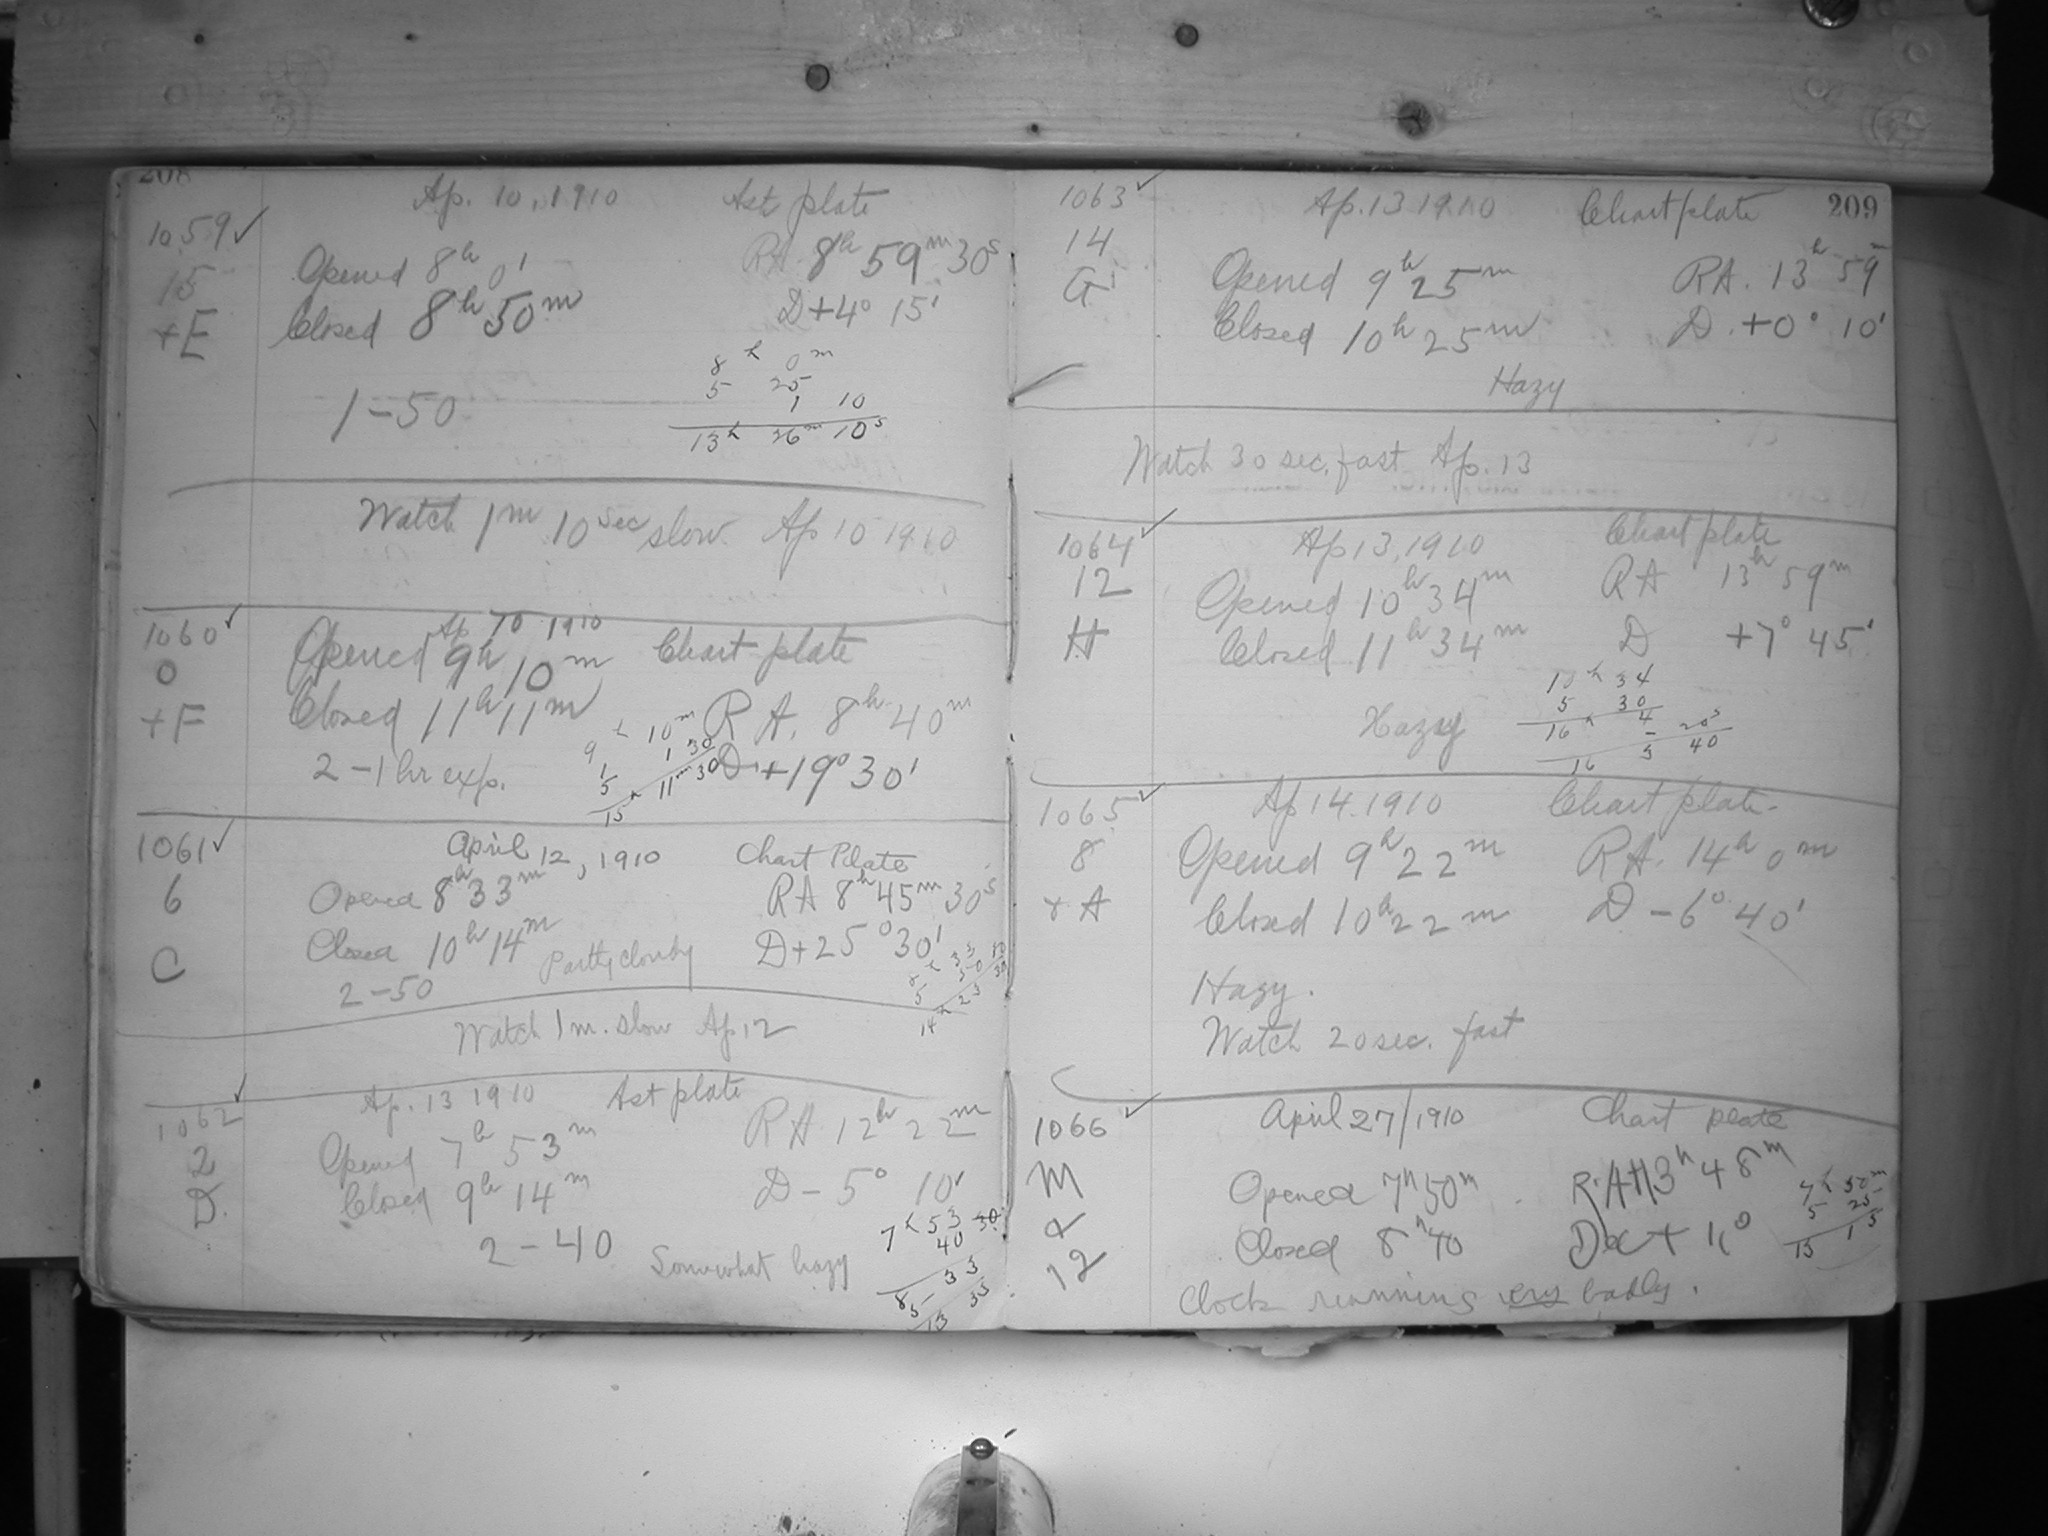 208
Ap. 10, 1910 Ast plate
1059 ✓
15
+E
Opened 8h 0' RA. 8h 59m 30s
Closed 8h 50m D+4° 15'
1-50
8h 0m
5 25
1 10
13h 26m 10s
Watch 1m 10sec slow. Ap 10 1910
1060 ✓
0
+F
Ap 10 1910
Opened 9h 10m Chart plate
Closed 11h 11m R A. 8h 40m
2-1hr exp. D+19° 30'
9h 10m
1 1 30
5 11m 30
15h
1061 ✓
6
C
April 12, 1910 Chart Plate
Opened 8h 33m RA 8h 45m 30s
Closed 10h 14m Partly cloudy D+25° 30'
2-50
8h 33
5 50
14h 23 30
Watch 1m. slow Ap 12
1062 ✓
2
D.
Ap. 13 1910 Ast plate
Opened 7h 53m RA 12h 22m
Closed 9h 14m D-5° 10'
2-40
Somewhat hazy
7h 53 30
40
8 33
5
13 33
209
1063 ✓
14
G
Ap. 13 1910 Chart plate
Opened 9h 25m RA. 13h 59m
Closed 10h 25m D. +0° 10'
Hazy
Watch 30 sec. fast Ap. 13
1064 ✓
12
H
Ap 13, 1910 Chart plate
Opened 10h 34m RA 13h 59m
Closed 11h 34m D +7° 45'
Hazy
10h 34
5 30
16h 4 20s
16 5 40
1065 ✓
8
+A
Ap 14. 1910 Chart plate-
Opened 9h 22m RA. 14h 0m
Closed 10h 22m D-6° 40'
Hazy.
Watch 20 sec. fast
1066 ✓
M
&
12
April 27/1910 Chart plate
Opened 7h 50m R.A 13h 48m
Closed 8h 40 Dec +
7h 50m
5 25
13 15
Clock running very badly.